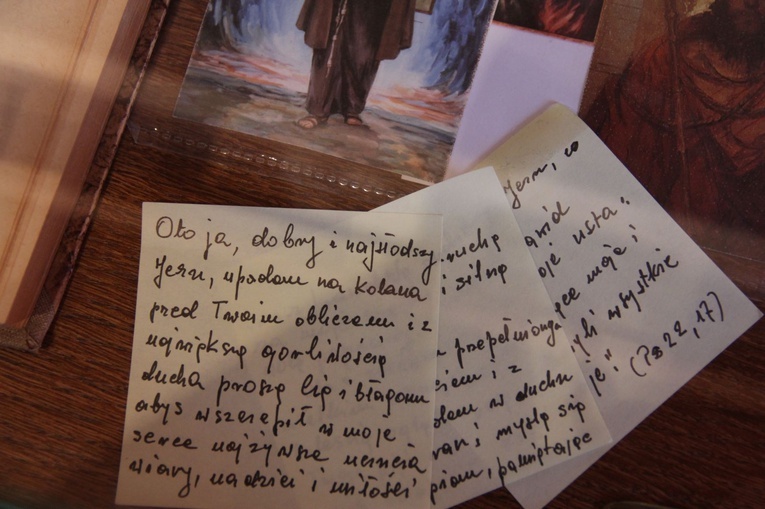 Oto ja, dobry i najsłodszy
Jezu, upadam na kolana
pred Twoim obliczem i z
największą gorliwością
ducha proszę Cię i błagam
abyś wszczepił w moje
serce najżywsze uczucia
wiary, nadziei i miłości
i silną
przepełniona
i z
w duchu
myślą się
pamiętając
Jezu, co
usta:
moje i
wszystkie
je." (Ps 22, 17)